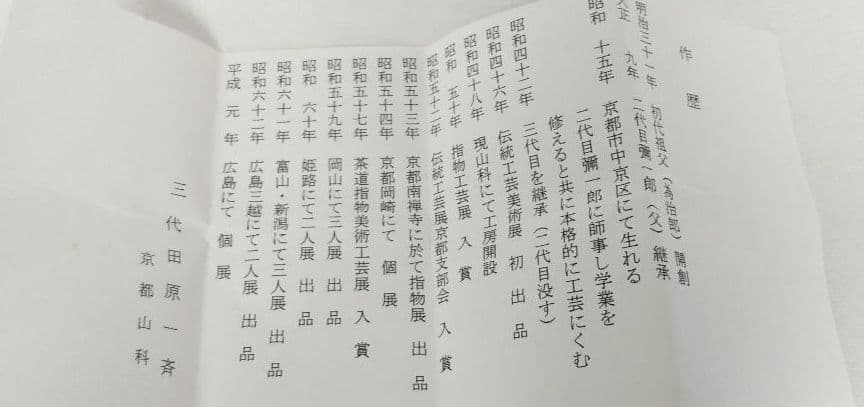 作歴
明治三十一年 初代祖父(為治郎)開創
大正 九年 二代目彌一郎(父)継承
昭和 十五年 京都市中京区にて生れる
二代目彌一郎に師事し学業を
修えると共に本格的に工芸にくむ
昭和四十二年 三代目を継承(二代目没す)
昭和四十六年 伝統工芸美術展 初出品
昭和四十八年 現山科にて工房開設
昭和 五十年 指物工芸展 入賞
昭和五十二年 伝統工芸展京都支部会 入賞
昭和五十三年 京都南禅寺に於て指物展 出品
昭和五十四年 京都岡崎にて 個展
昭和五十七年 茶道指物美術工芸展 入賞
昭和五十九年 岡山にて三人展 出品
昭和 六十年 姫路にて二人展 出品
昭和六十一年 富山・新潟にて三人展 出品
昭和六十二年 広島三越にて二人展 出品
平成 元年 広島にて 個展
三代田原一斉
京都山科